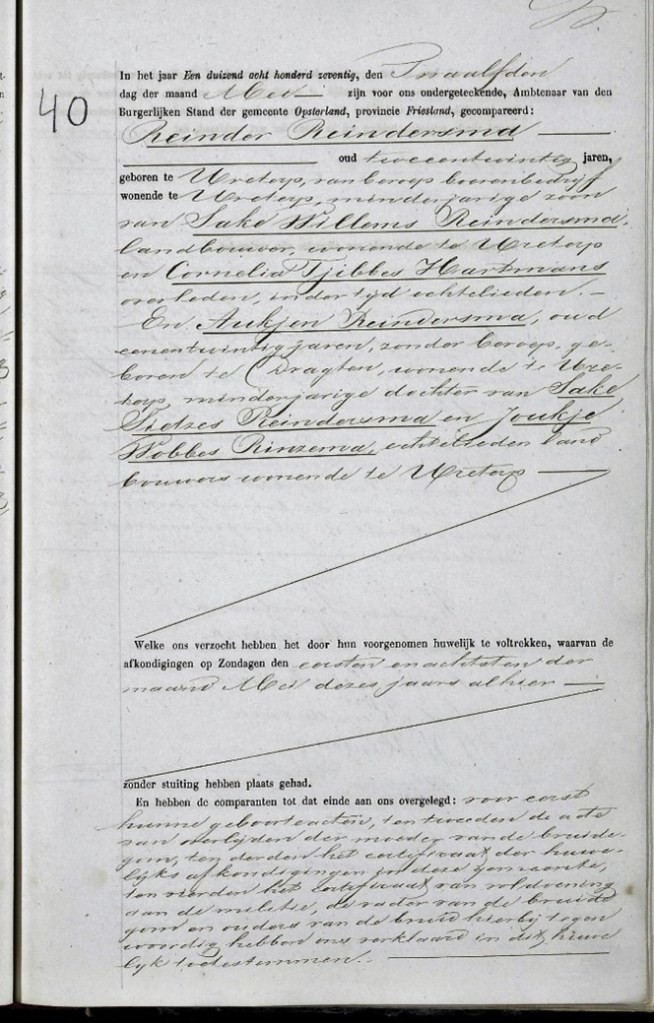 40
In het jaar Een duizend acht honderd zeventig, den Twaalfden
dag der maand Mei zijn voor ons ondergeteekende, Ambtenaar van den
Burgerlijken Stand der gemeente Opsterland, provincie Friesland, gecompareerd:
Reinder Reindersma
oud tweeentwintig jaren,
geboren te Ureterp, van beroep boerenbedrijf
wonende te Ureterp, minderjarige zoon
van Sake Willems Reindersma,
landbouwer, wonende te Ureterp
en Cornelia Tjibbes Hartmans
overleden, in der tijd echtelieden. –
En Aukjen Reindersma, oud
eenentwintig jaren, zonder beroep, ge-
boren te Dragten, wonende te Ure-
terp, minderjarige dochter van Sake
Sietzes Reindersma en Joukje
Wobbes Rinzema, echtelieden land
bouwers wonende te Ureterp
Welke ons verzocht hebben het door hun voorgenomen huwelijk te voltrekken, waarvan de
afkondigingen op Zondagen den eersten en achtsten der
maand Mei dezes jaars alhier
zonder stuiting hebben plaats gehad.
En hebben de comparanten tot dat einde aan ons overgelegd: voor eerst
hunne geboorteacten, ten tweeden de acte
van overlijden der moeder van de bruide-
gom, ten derden het certifikaat der huwe-
lijks afkondigingen in deze gemeente,
ten vierden het certifikaat van voldoening
aan de militie, de vader van de bruide
gom en ouders van de bruid hierbij tegen
woordig hebben ons verklaard in dit huwe
lijk toetestemmen.